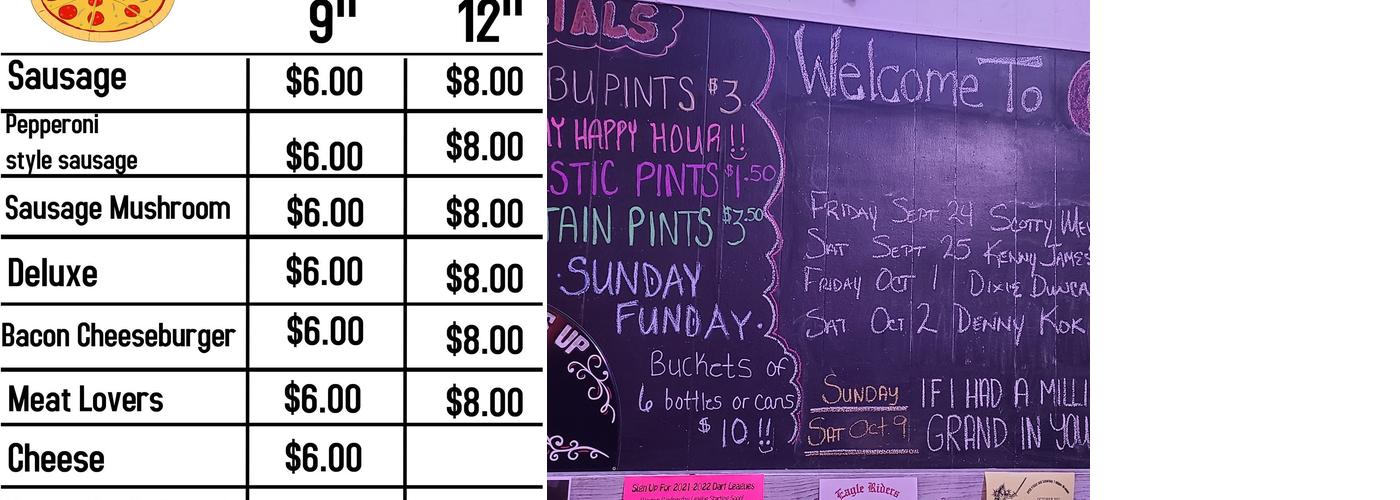 9" 12"
Sausage $6.00 $8.00
Pepperoni
style sausage $6.00 $8.00
Sausage Mushroom $6.00 $8.00
Deluxe $6.00 $8.00
Bacon Cheeseburger $6.00 $8.00
Meat Lovers $6.00 $8.00
Cheese $6.00
IALS
BU PINTS $3
Y HAPPY HOUR!!
STIC PINTS $1.50
TAIN PINTS $3.50
·SUNDAY
FUNDAY·
Buckets of
6 bottles or cans
$10!!
UP
Welcome To
FRIDAY SEPT 24 SCOTTY
SAT SEPT 25 KENNY JAMES
FRIDAY OCT 1 DIXIE DUNCA
SAT OCT 2 DENNY KOK
SUNDAY IF I HAD A MILLI
SAT Oct 9 GRAND IN YOU
Sign Up For 2021-2022 Dart Leagues
Eagle Riders